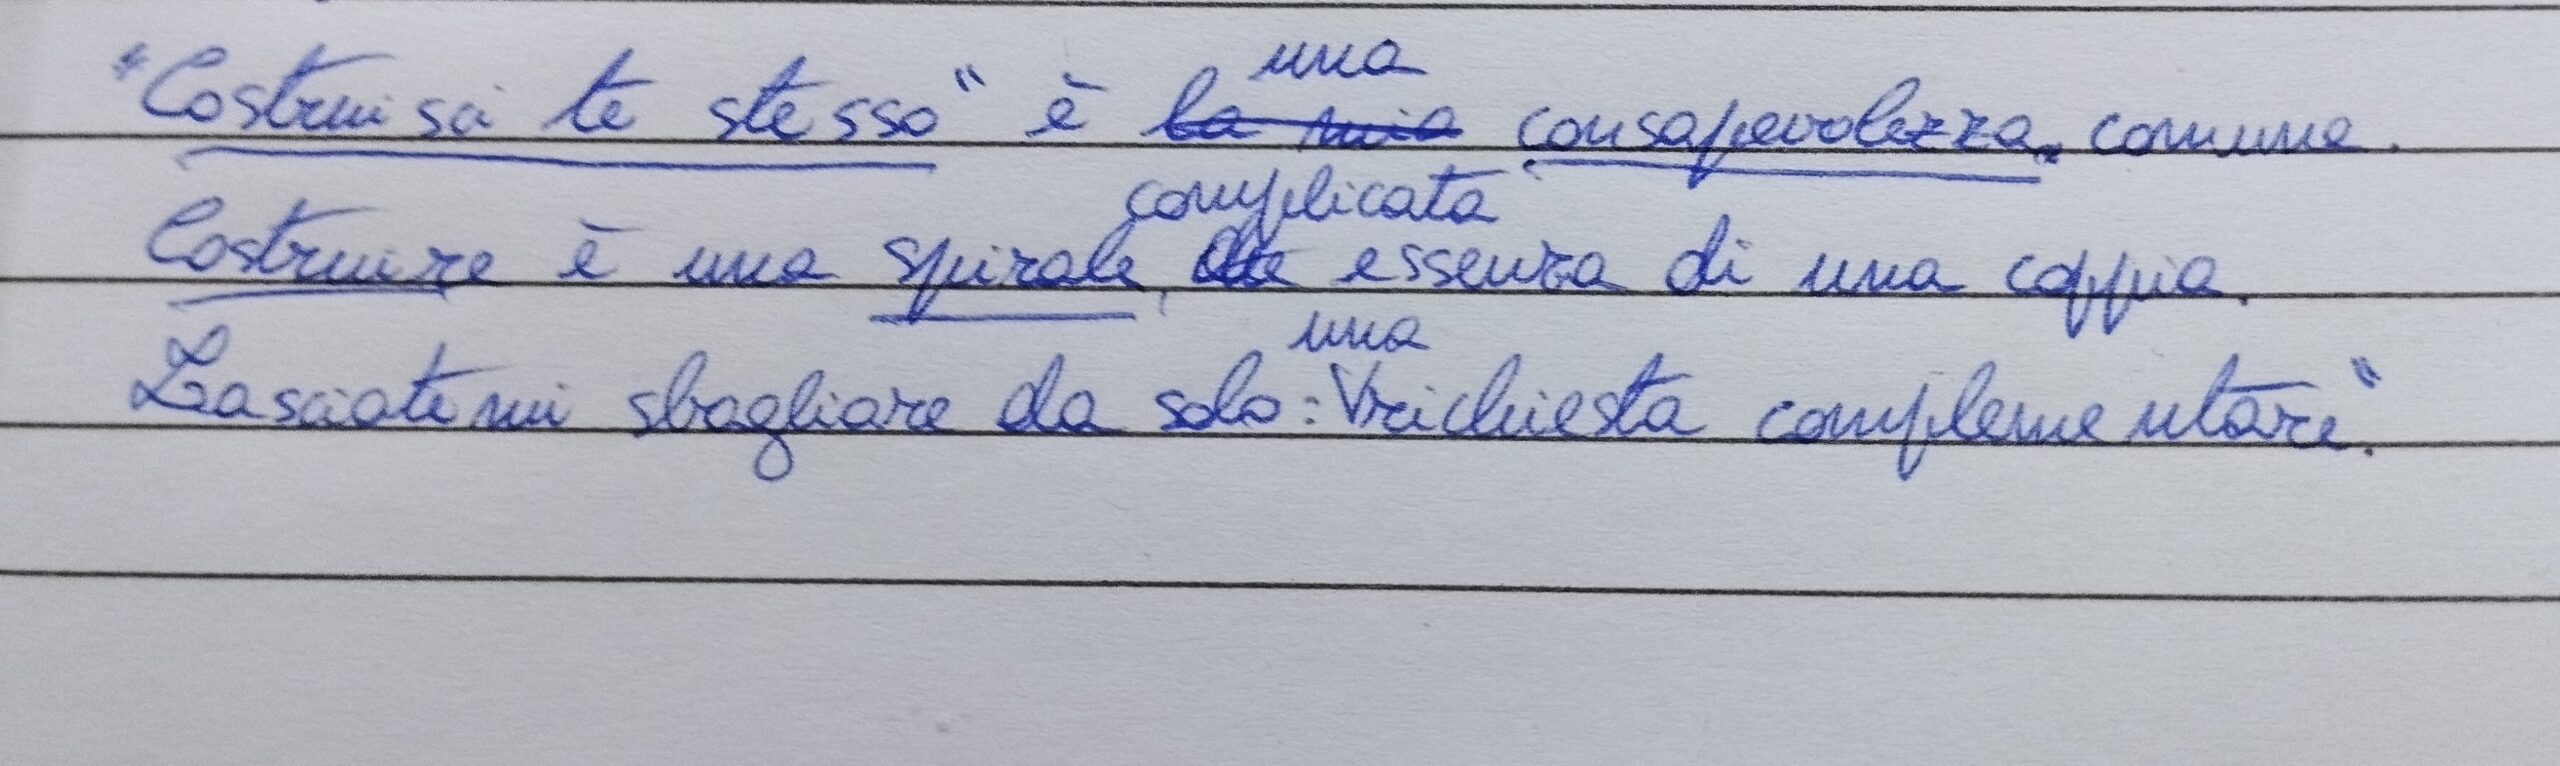 "Costruisci te stesso" è una consapevolezza comune.
Costruire è una spirale, complicata essenza di una coppia.
Lasciatemi sbagliare da solo: una richiesta complementare".